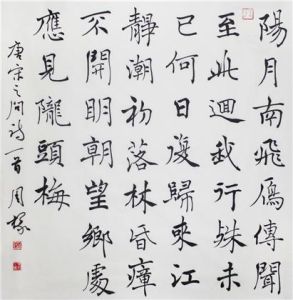 陽月南飛雁傳聞
至此迴我行殊未
已何日復歸來江
靜潮初落林昏瘴
不開明朝望鄉處
應見隴頭梅
唐宋之问詩一首周